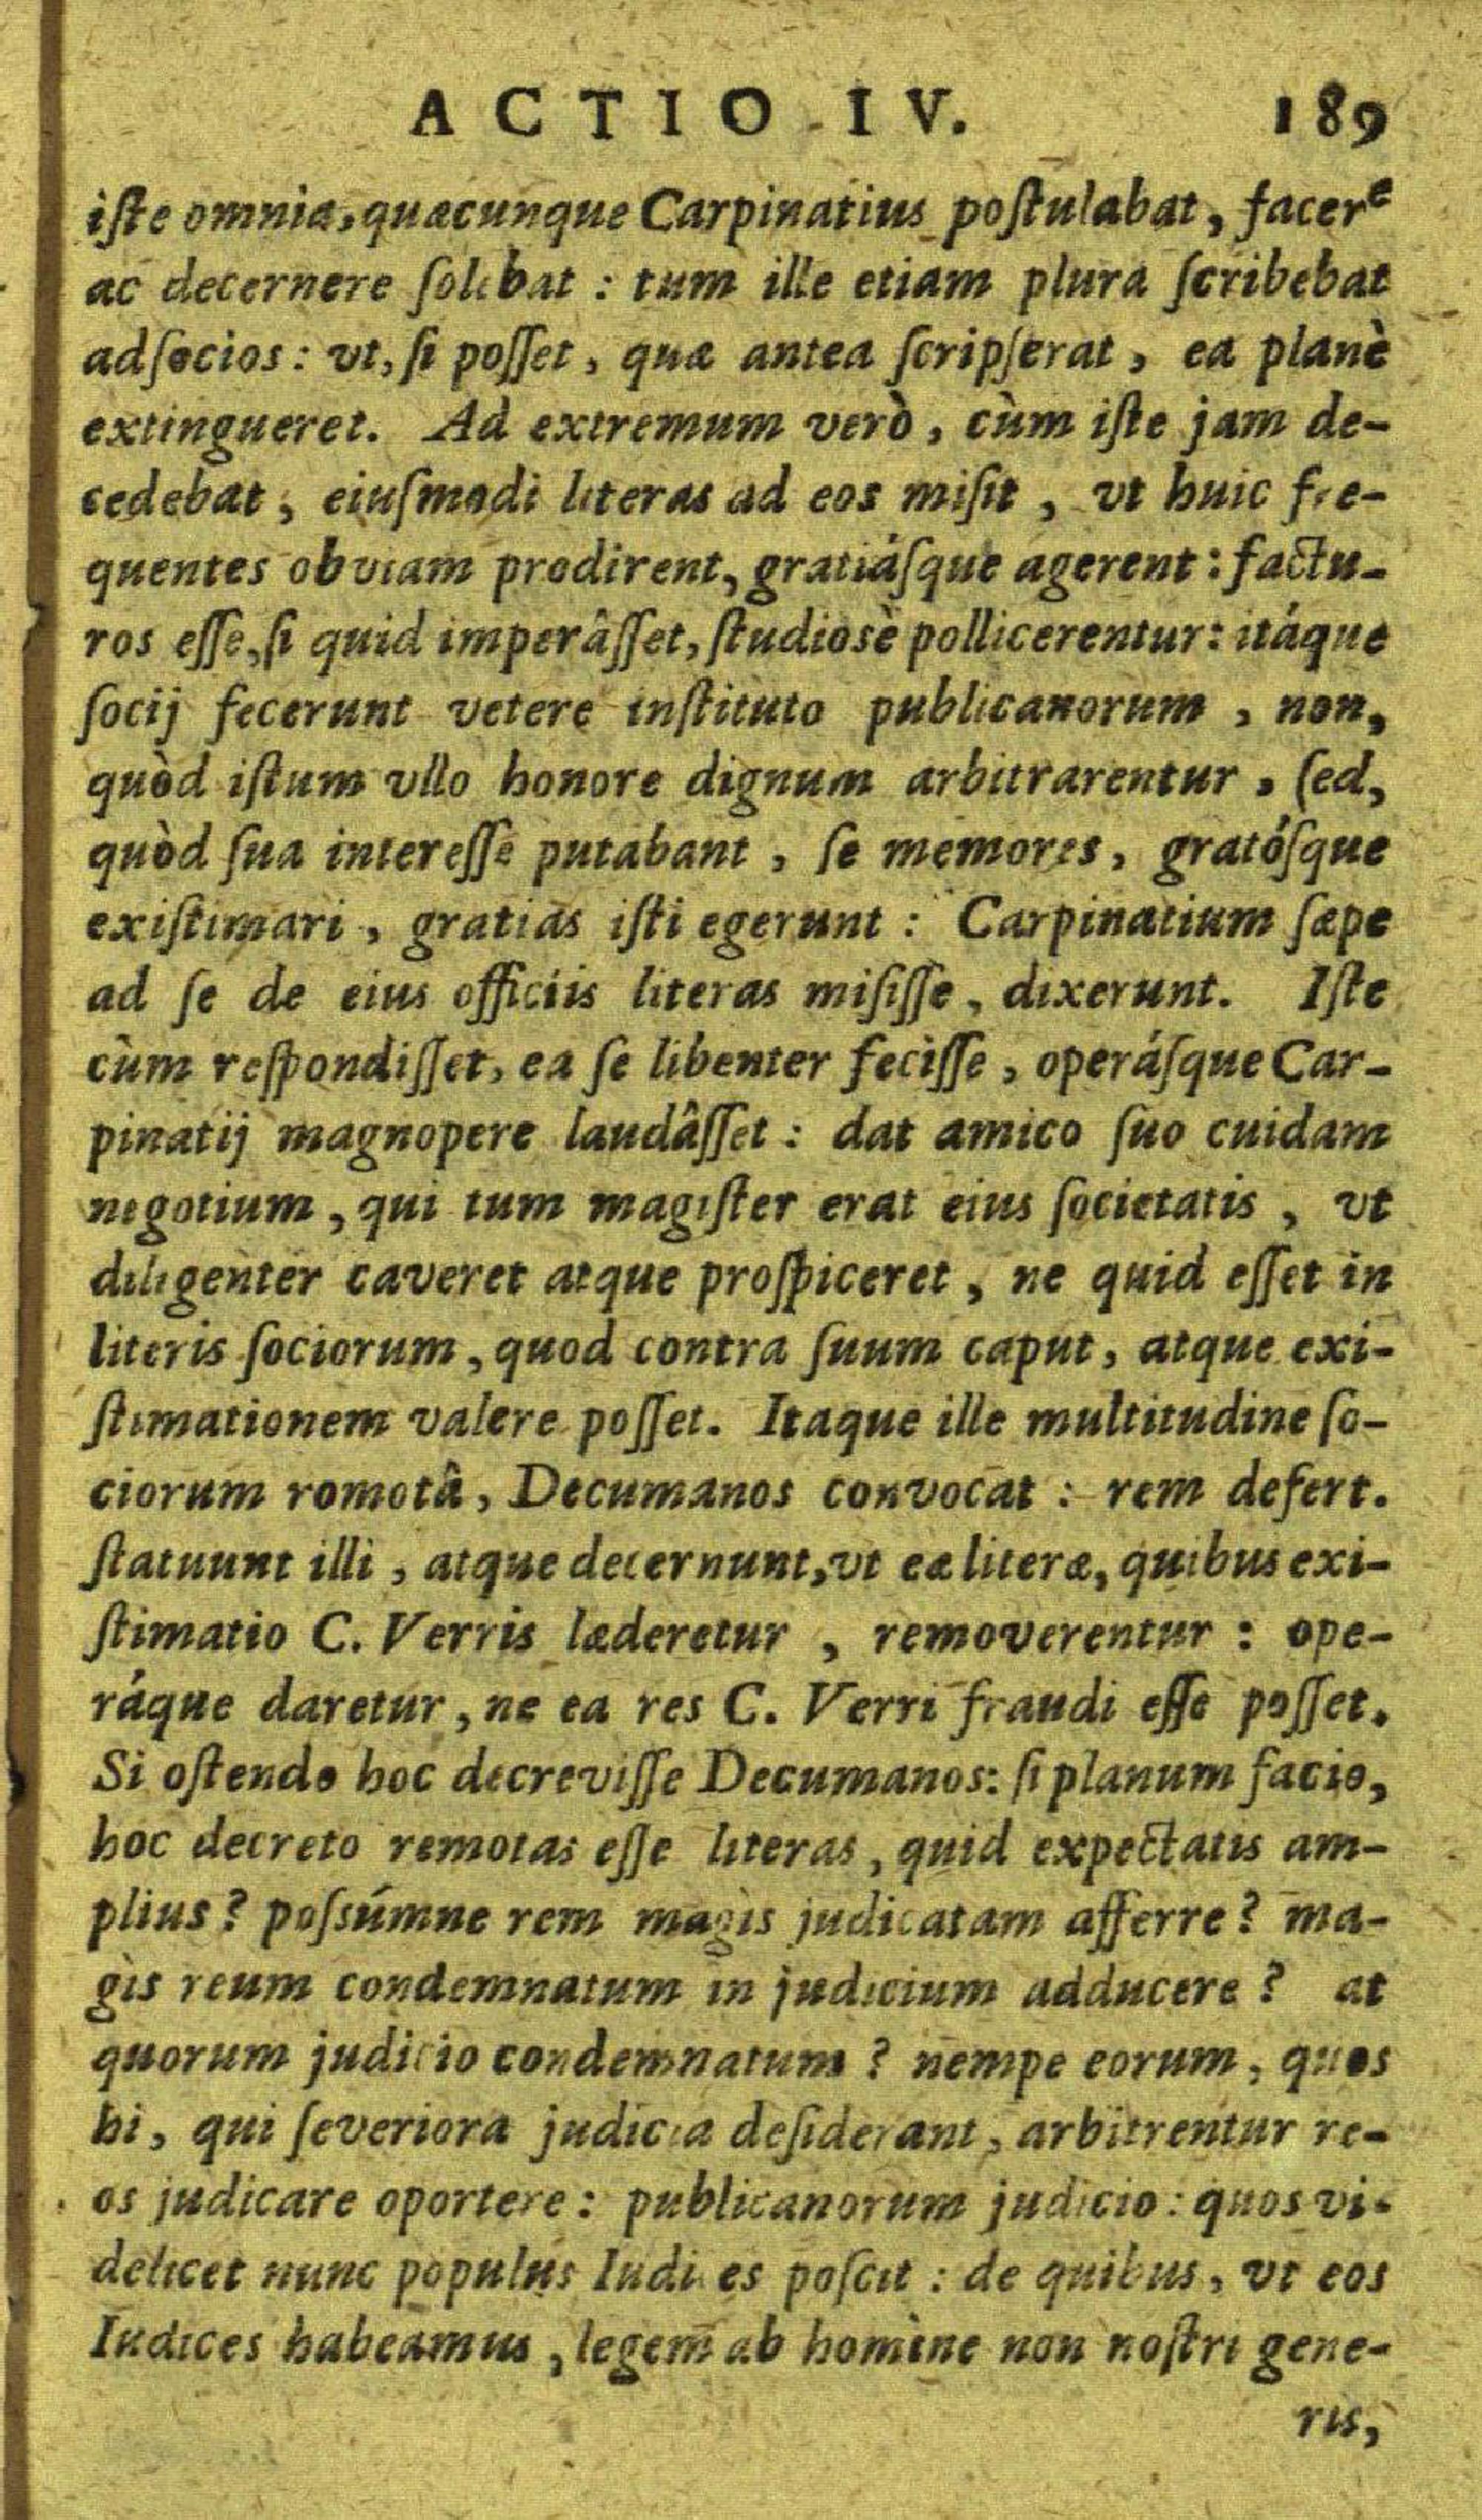 ACTIO IV. 189
iſte omnia, quæcunque Carpinatius poſtulabat, facere
ac decernere ſolebat : tum ille etiam plura ſcribebat
ad ſocios : vt, ſi poſſet, quæ antea ſcripſerat, ea planè
extingueret. Ad extremum verò, cùm iſte jam de-
cedebat, eiuſmodi literas ad eos miſit, vt huic fre-
quentes obviam prodirent, gratiáſque agerent : factu-
ros eſſe, ſi quid imperâſſet, ſtudiosè pollicerentur : itáque
ſocij fecerunt vetere inſtituto publicanorum, non,
quòd iſtum vllo honore dignum arbitrarentur, ſed,
quòd ſua intereſſe putabant, ſe memores, gratóſque
exiſtimari, gratias iſti egerunt : Carpinatium ſæpe
ad ſe de eius officiis literas miſiſſe, dixerunt. Iſte
cùm reſpondiſſet, ea ſe libenter feciſſe, operáſque Car-
pinatij magnopere laudâſſet : dat amico ſuo cuidam
negotium, qui tum magiſter erat eius ſocietatis, vt
diligenter caveret atque proſpiceret, ne quid eſſet in
literis ſociorum, quod contra ſuum caput, atque exi-
ſtimationem valere poſſet. Itaque ille multitudine ſo-
ciorum romotâ, Decumanos convocat : rem defert.
ſtatuunt illi, atque decernunt, vt eæ literæ, quibus exi-
ſtimatio C. Verris læderetur, removerentur : ope-
ráque daretur, ne ea res C. Verri fraudi eſſe poſſet.
Si oſtendo hoc decreviſſe Decumanos : ſi planum facio,
hoc decreto remotas eſſe literas, quid expectatis am-
plius ? poſsúmne rem magìs judicatam afferre ? ma-
gìs reum condemnatum in judicium adducere ? at
quorum judicio condemnatum ? nempe eorum, quos
hi, qui ſeveriora judicia deſiderant, arbitrentur re-
os judicare oportere : publicanorum judicio : quos vi-
delicet nunc populus Iudices poſcit : de quibus, vt eos
Iudices habeamus, legem ab homine non noſtri gene-
ris,